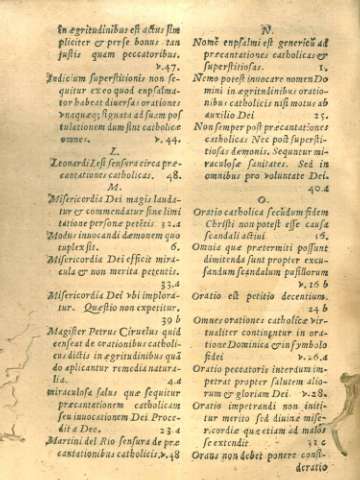 In ægritudinibus est actus sim
pliciter & per se bonus tan
justis quam peccatoribus.
v.47.
Indicium superstitionis non se-
quitur ex eo quod enpsalma-
tor habeat diversas orationes
vnaquæq; signata ad suam pos
tulationem dum sint catholicæ
omnes. v. 44.
L.
Leonardi Lesi sensera circa præ-
cantationes catholicas. 48.
M.
Misericordia Dei magis lauda-
tur & commendatur sine limi
tatione personæ petētis. 32.4
Modus inuocandi dæmonem quo
tuplex sit. 6.
Misericordia Dei efficit mira-
cula & non merita petentis.
33.4
Misericordia Dei vbi implora-
tur. Quæstio non expetitur.
39 b
Magister Petrus Ciruelus quid
censeat de orationibus catholi-
cis dictis in ægritudinibus quā
do aplicantur remedia natura-
lia. 4.4
miraculosa salus quæ sequitur
præcantationem catholicam
seu inuocationem Dei Proce-
dit a Deo. 23.4
Martini del Rio sensura de præ
cantationibus catholicis. v.48
N.
Nomē enpsalmi est genericū ad
præcantationes catholicas &
superstitiosas. 1.
Nemo potest inuocare nomen Do
mini in ægritudinibus oratio-
nibus catholicis nisi motus ab
auxilio Dei 25.
Non semper post præcantationes
catholicas Nec post supersti-
tiosas dæmonis. Sequntur mi-
raculosæ sanitates. Sed in
omnibus pro voluntate Dei.
40.4
O.
Oratio catholica secūdum fidem
Christi non potest esse causa
scandali activi 16.
Omnia quæ prætermiti possunt
dimitenda sunt propter excu-
sandum scandalum pusillorum
v.16 b
Oratio est petitio decentium.
24 b
Omnes orationes catholicæ vir-
tualiter contingntur in ora-
tione Dominica & in symbolo
fidei v.26.4
Oratio peccatoris interdum im-
petrat propter salutem alio-
rum & gloriam Dei v.28.
Oratio impetrandi non initi-
tur merito sed diuinæ mise-
ricordiæ quæ etiam ad malos
se extendit 32 c
Orans non debet ponere consi-
deratio